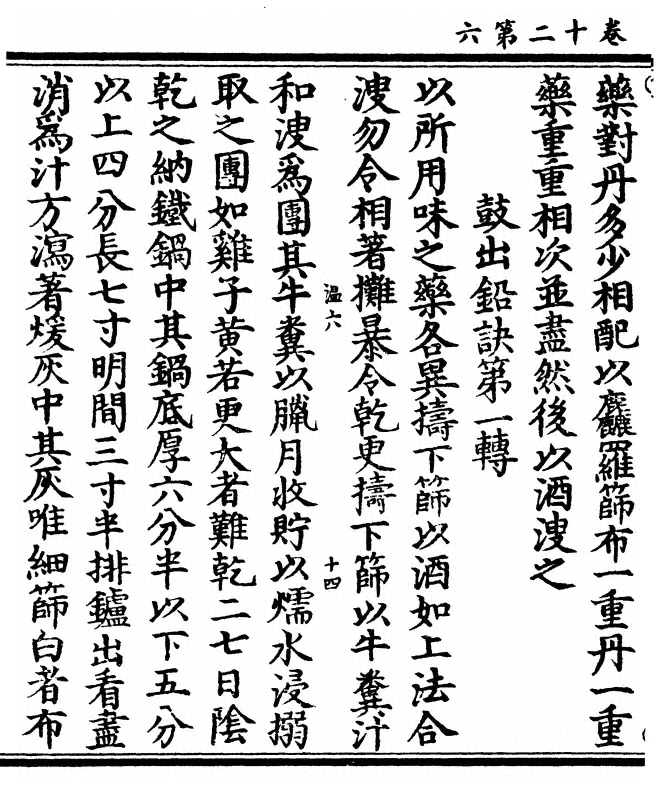 卷十二第六
藥對丹多少相配以麤羅篩布一重丹一重
藥重重相次並盡然後以酒溲之
鼓出鉛訣第一轉
以所用味之藥各異擣下篩以酒如上法合
溲勿令相著攤暴令乾更擣下篩以牛糞汁
溫六
十四
和溲爲團其牛糞以臘月收貯以濡水浸搦
取之團如雞子黃若更大者難乾二七日陰
乾之納鐵鍋中其鍋底厚六分半以下五分
以上四分長七寸明間三寸半排鑪出看盡
消爲汁方瀉著煖灰中其灰唯細篩白者布